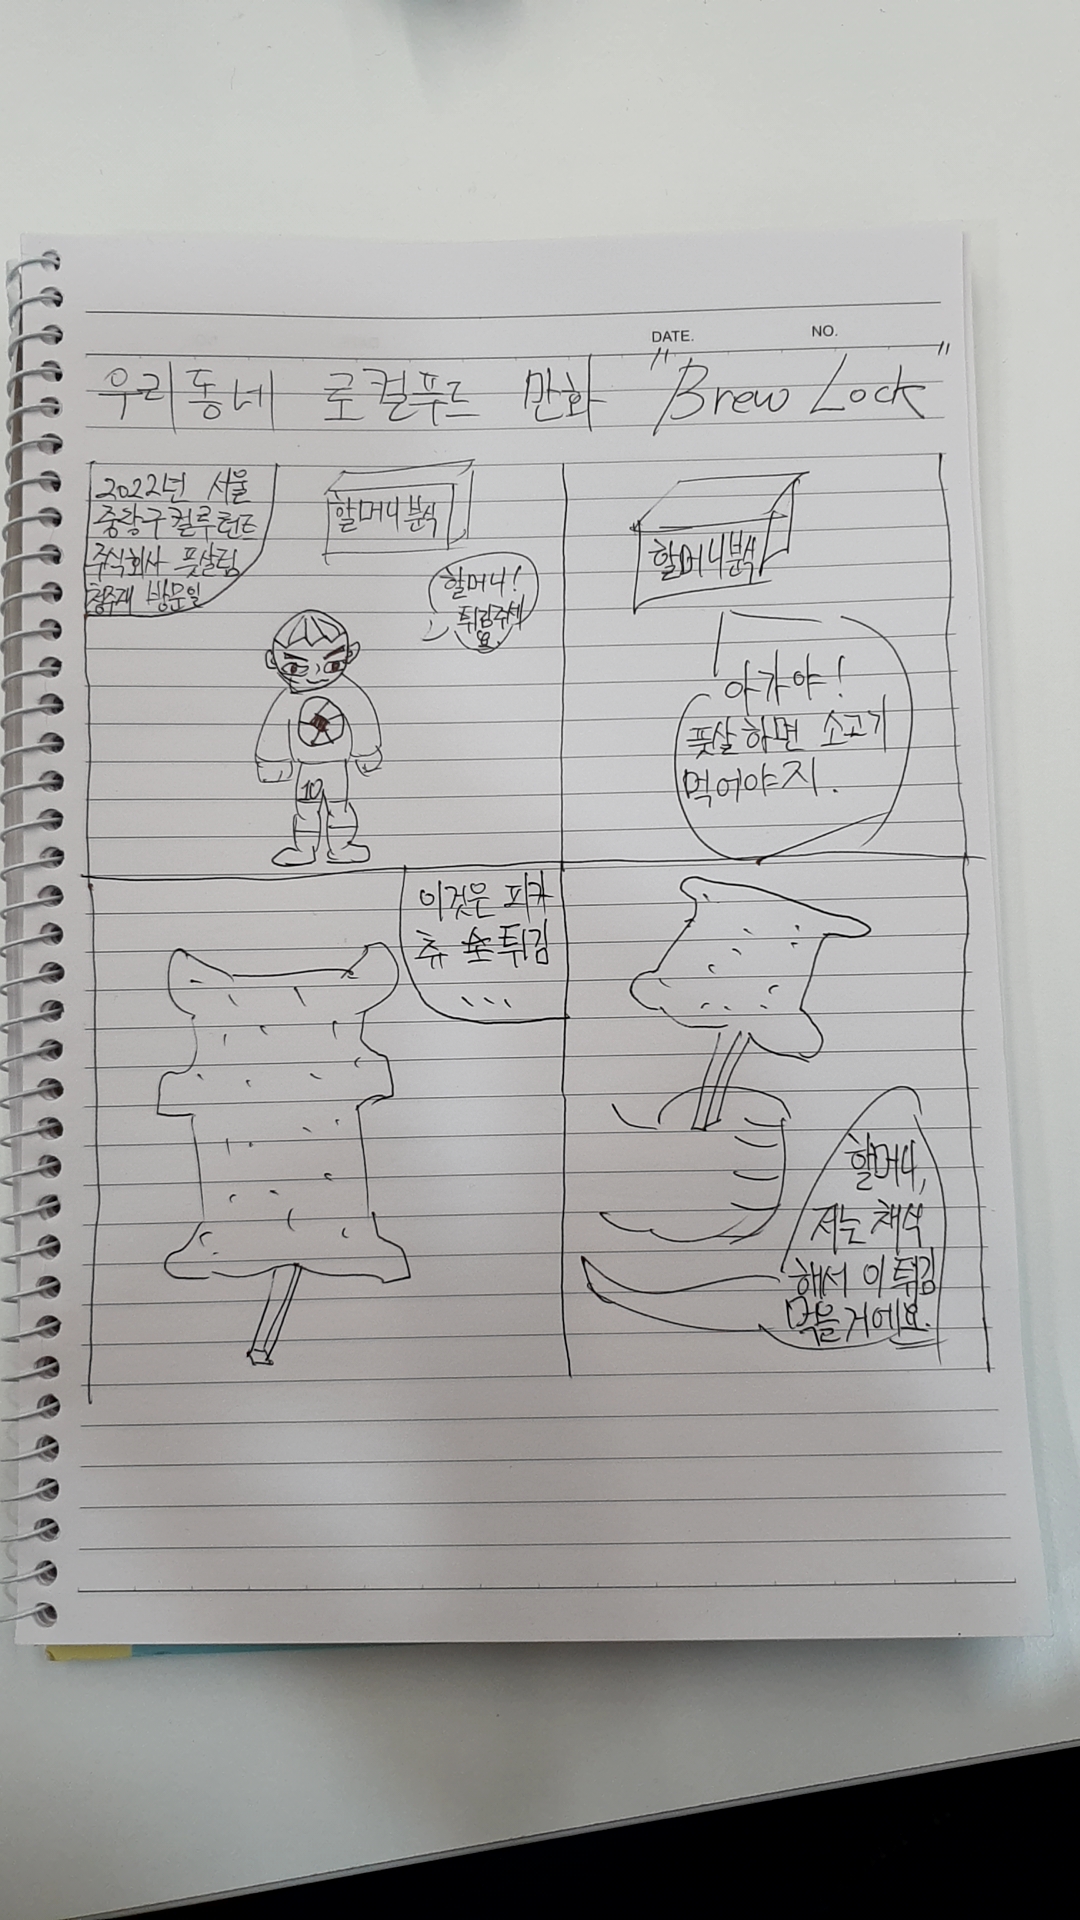 DATE. NO.
우리동네 로컬푸드 만화 "Brew Lock"
2022년 서울
중랑구 컬루턴트
주식회사 풋살림
방문일
할머니분식
할머니!
튀김주세
요.
할머니분식
아가야!
풋살하면 소고기
먹어야지.
이것은 피카
츄 튀김
...
할머니,
저는 채식
해서 이 튀김
먹을거에요.
10